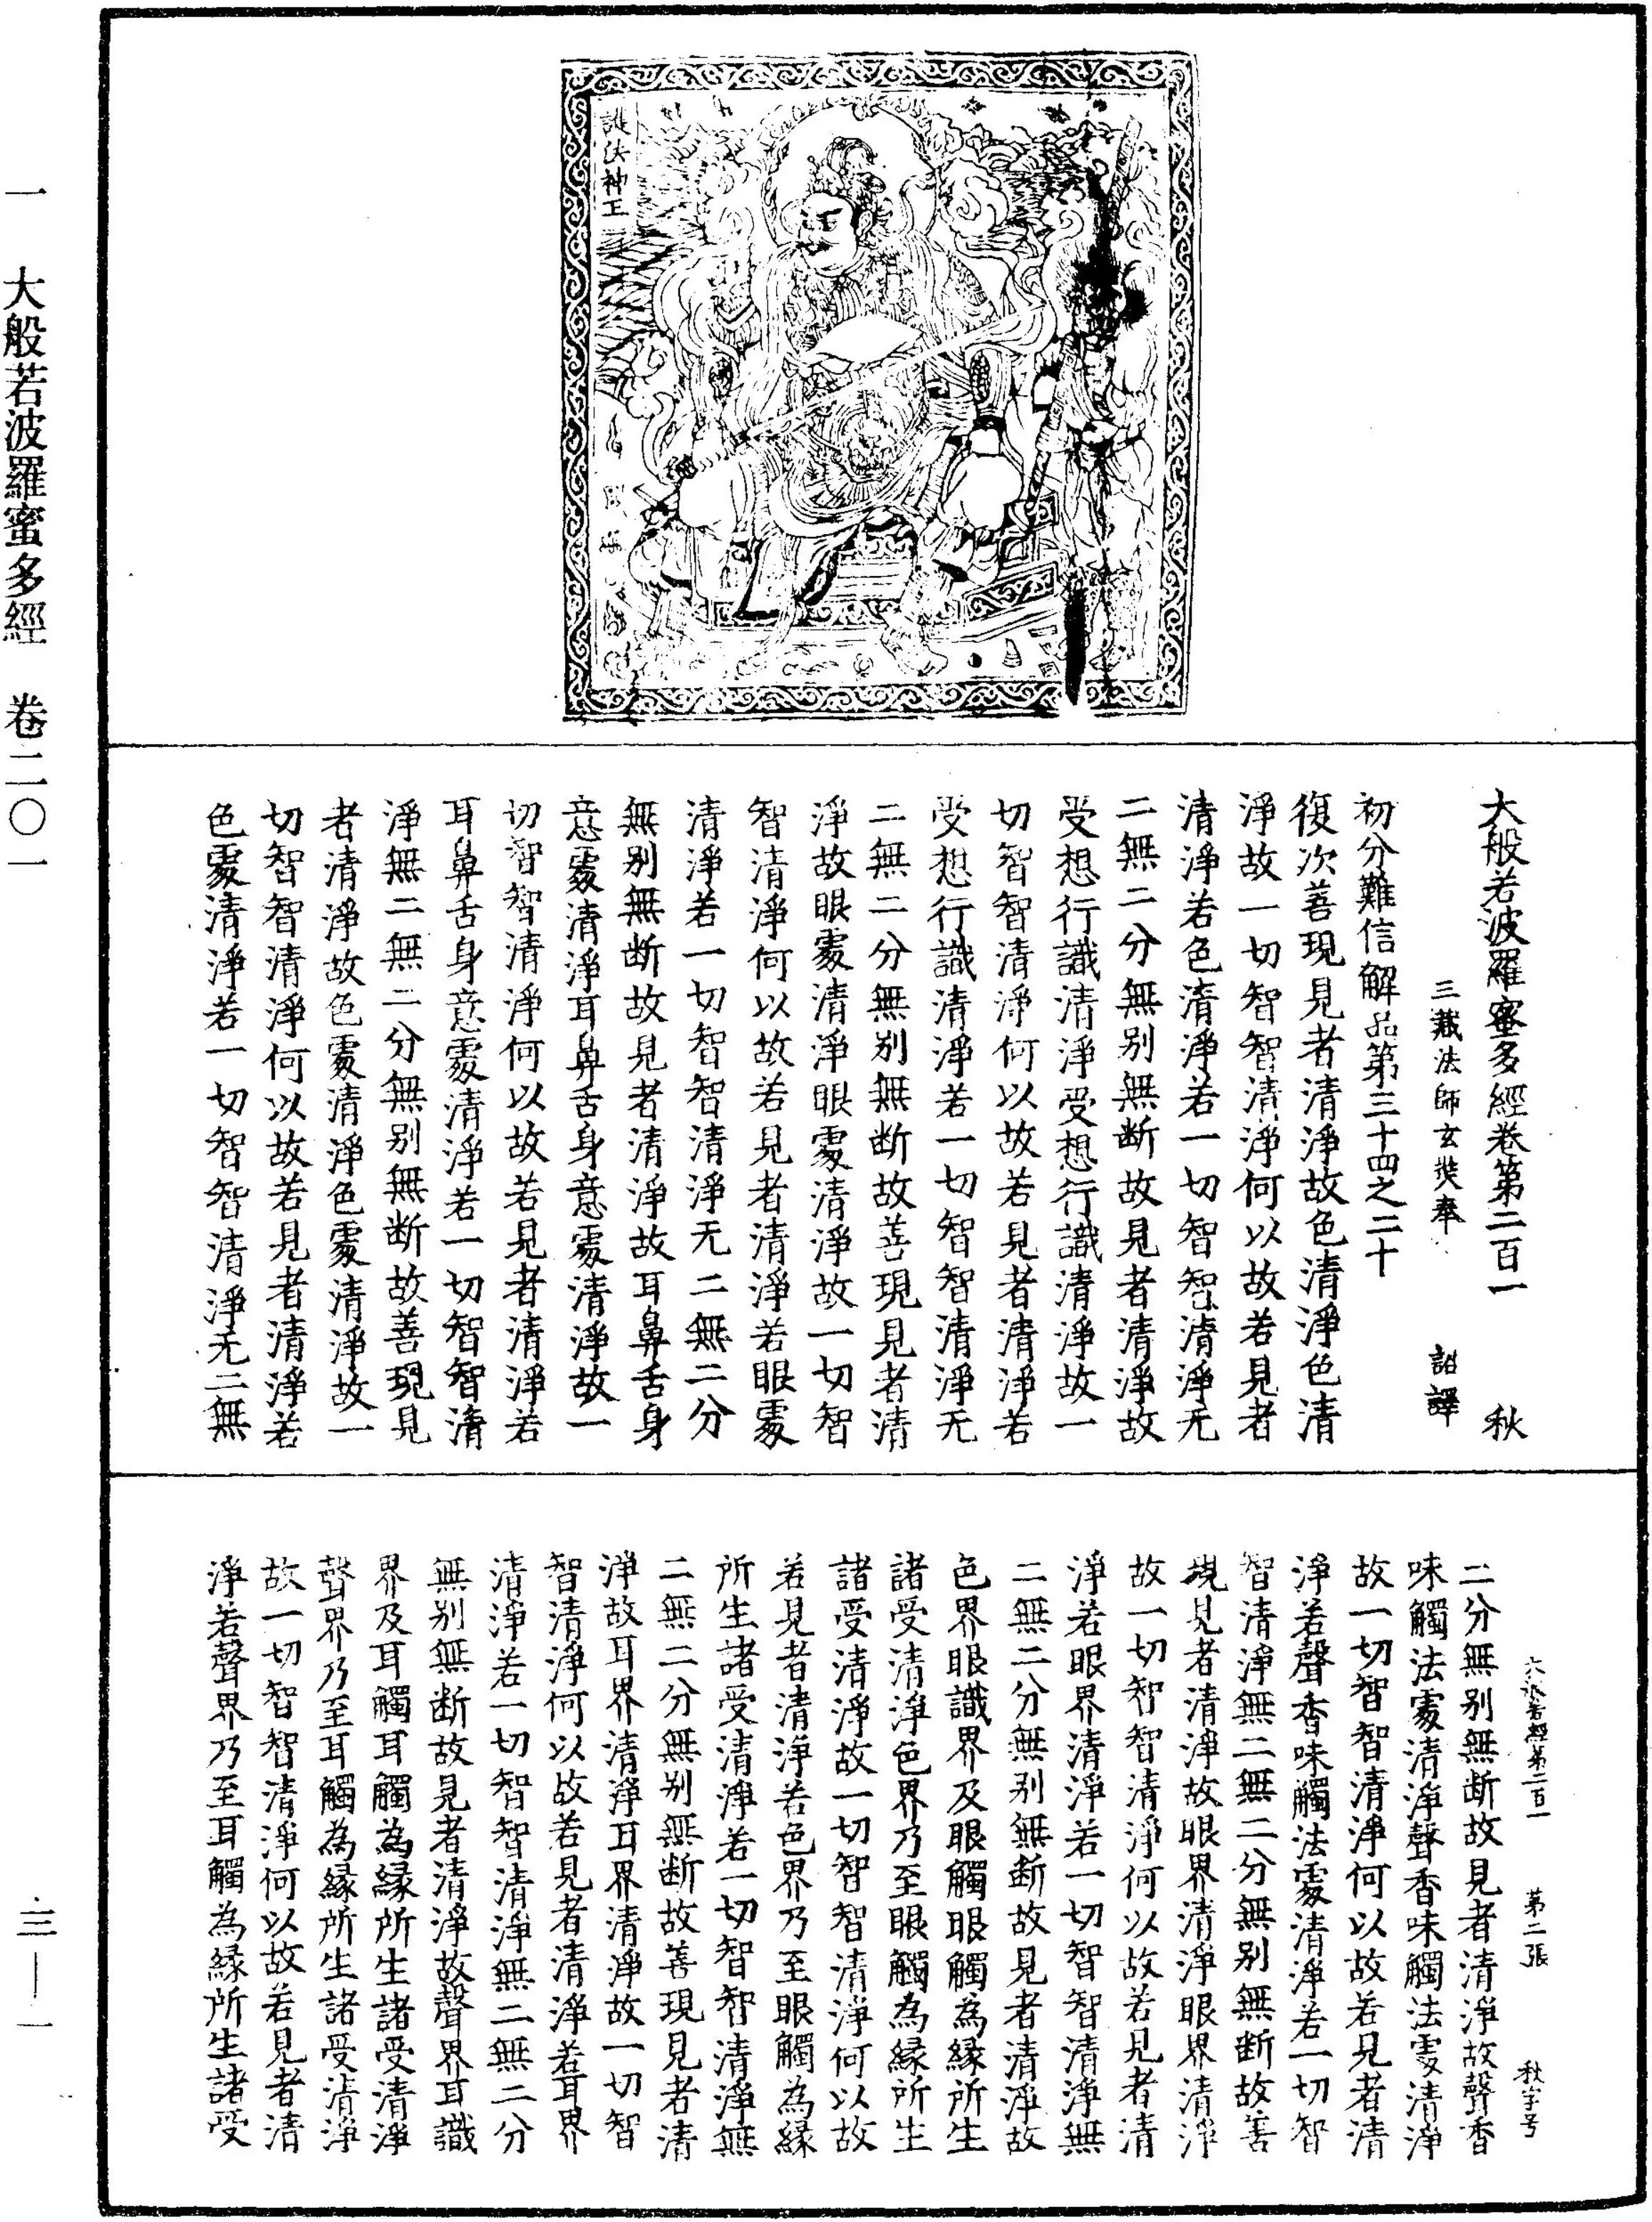 一 大般若波羅蜜多經 卷二〇一
三—一
護法神王
大般若波羅蜜多經卷第二百一 秋
三藏法師玄奘奉 詔譯
初分難信解品第三十四之二十
復次善現見者清淨故色清淨色清
淨故一切智智清淨何以故若見者
清淨若色清淨若一切智智清淨无
二無二分無別無断故見者清淨故
受想行識清淨受想行識清淨故一
切智智清淨何以故若見者清淨若
受想行識清淨若一切智智清淨无
二無二分無別無断故善現見者清
淨故眼處清淨眼處清淨故一切智
智清淨何以故若見者清淨若眼處
清淨若一切智智清淨无二無二分
無別無断故見者清淨故耳鼻舌身
意處清淨耳鼻舌身意處清淨故一
切智智清淨何以故若見者清淨若
耳鼻舌身意處清淨若一切智智清
淨無二無二分無別無断故善現見
者清淨故色處清淨色處清淨故一
切智智清淨何以故若見者清淨若
色處清淨若一切智智清淨无二無
大般若經第二百一 第二張 秋字号
二分無別無断故見者清淨故聲香
味觸法處清淨聲香味觸法處清淨
故一切智智清淨何以故若見者清
淨若聲香味觸法處清淨若一切智
智清淨無二無二分無別無断故善
現見者清淨故眼界清淨眼界清淨
故一切智智清淨何以故若見者清
淨若眼界清淨若一切智智清淨無
二無二分無別無断故見者清淨故
色界眼識界及眼觸眼觸為緣所生
諸受清淨色界乃至眼觸為緣所生
諸受清淨故一切智智清淨何以故
若見者清淨若色界乃至眼觸為緣
所生諸受清淨若一切智智清淨無
二無二分無別無断故善現見者清
淨故耳界清淨耳界清淨故一切智
智清淨何以故若見者清淨若耳界
清淨若一切智智清淨無二無二分
無別無断故見者清淨故聲界耳識
界及耳觸耳觸為緣所生諸受清淨
聲界乃至耳觸為緣所生諸受清淨
故一切智智清淨何以故若見者清
淨若聲界乃至耳觸為緣所生諸受